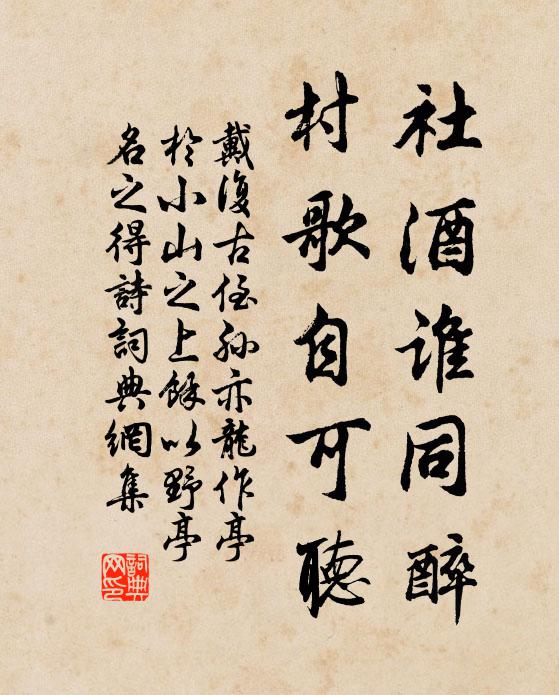 社酒誰同醉
村歌自可聽
戴復古侄孙亦龍作亭
於小山之上餘以野亭
名之得詩詞典網集
詞典
网印